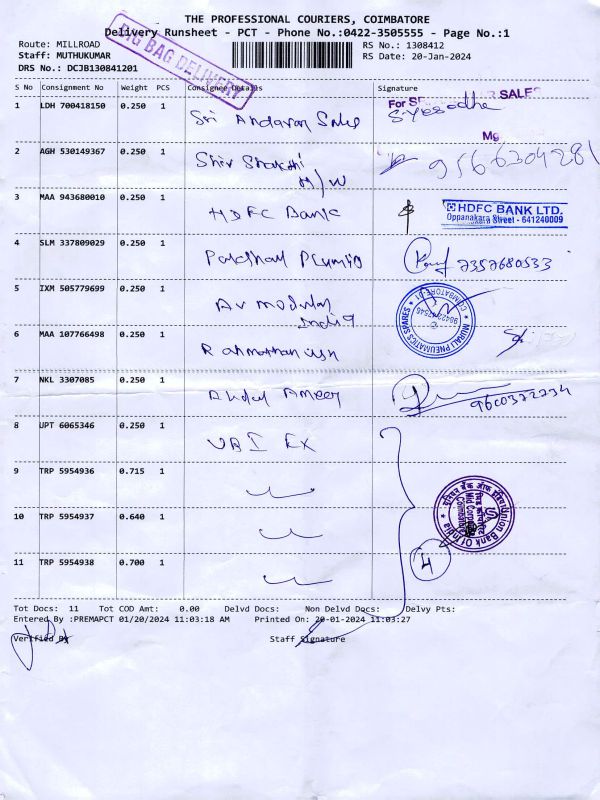 THE PROFESSIONAL COURIERS, COIMBATORE
Delivery Runsheet - PCT - Phone No.:0422-3505555 - Page No.:1
Route: MILLROAD
RS No.: 1308412
Staff: MUTHUKUMAR
RS Date: 20-Jan-2024
DRS No.: DCJB130841201
BIG BAG DELIVERY
S No Consignment No Weight PCS Consignee Details Signature
1 LDH 700418150 0.250 1 Sri Andavar Sales
For SALES
S. Yesodha
Mg
2 AGH 530149367 0.250 1 Shiv Shakthi H/W 9566304281
3 MAA 943680010 0.250 1 HDFC Bank
HDFC BANK LTD.
Oppanakara Street - 641240009
4 SLM 337809029 0.250 1 7357680533
5 IXM 505779699 0.250 1 AV modular India
MURALI PNEUMATICS SPARES
COIMBATORE
6 MAA 107766498 0.250 1
7 NKL 3307085 0.250 1 Abdul Ameer 9600322234
8 UPT 6065346 0.250 1 UBI EX
9 TRP 5954936 0.715 1
यूनियन बैंक ऑफ इंडिया Union Bank Of India
10 TRP 5954937 0.640 1
11 TRP 5954938 0.700 1
4
Tot Docs: 11 Tot COD Amt: 0.00 Delvd Docs: Non Delvd Docs: Delvy Pts:
Entered By :PREMAPCT 01/20/2024 11:03:18 AM Printed On: 20-01-2024 11:03:27
Verified By Staff Signature